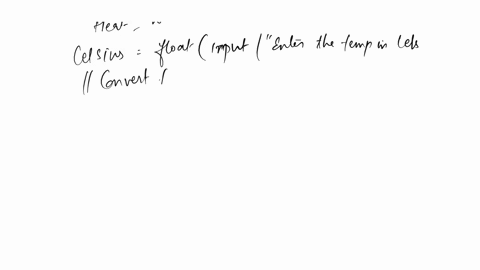 Here, "
Celsius = float ( input ( "Enter the temp in Cels
// Convert (